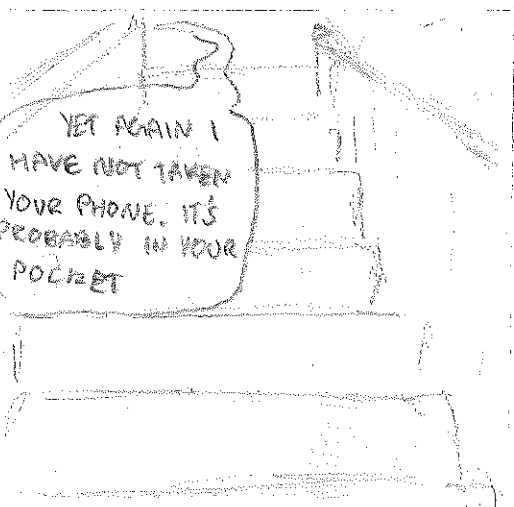 YET AGAIN I
HAVE NOT TAKEN
YOUR PHONE. IT'S
PROBABLY IN YOUR
POCKET